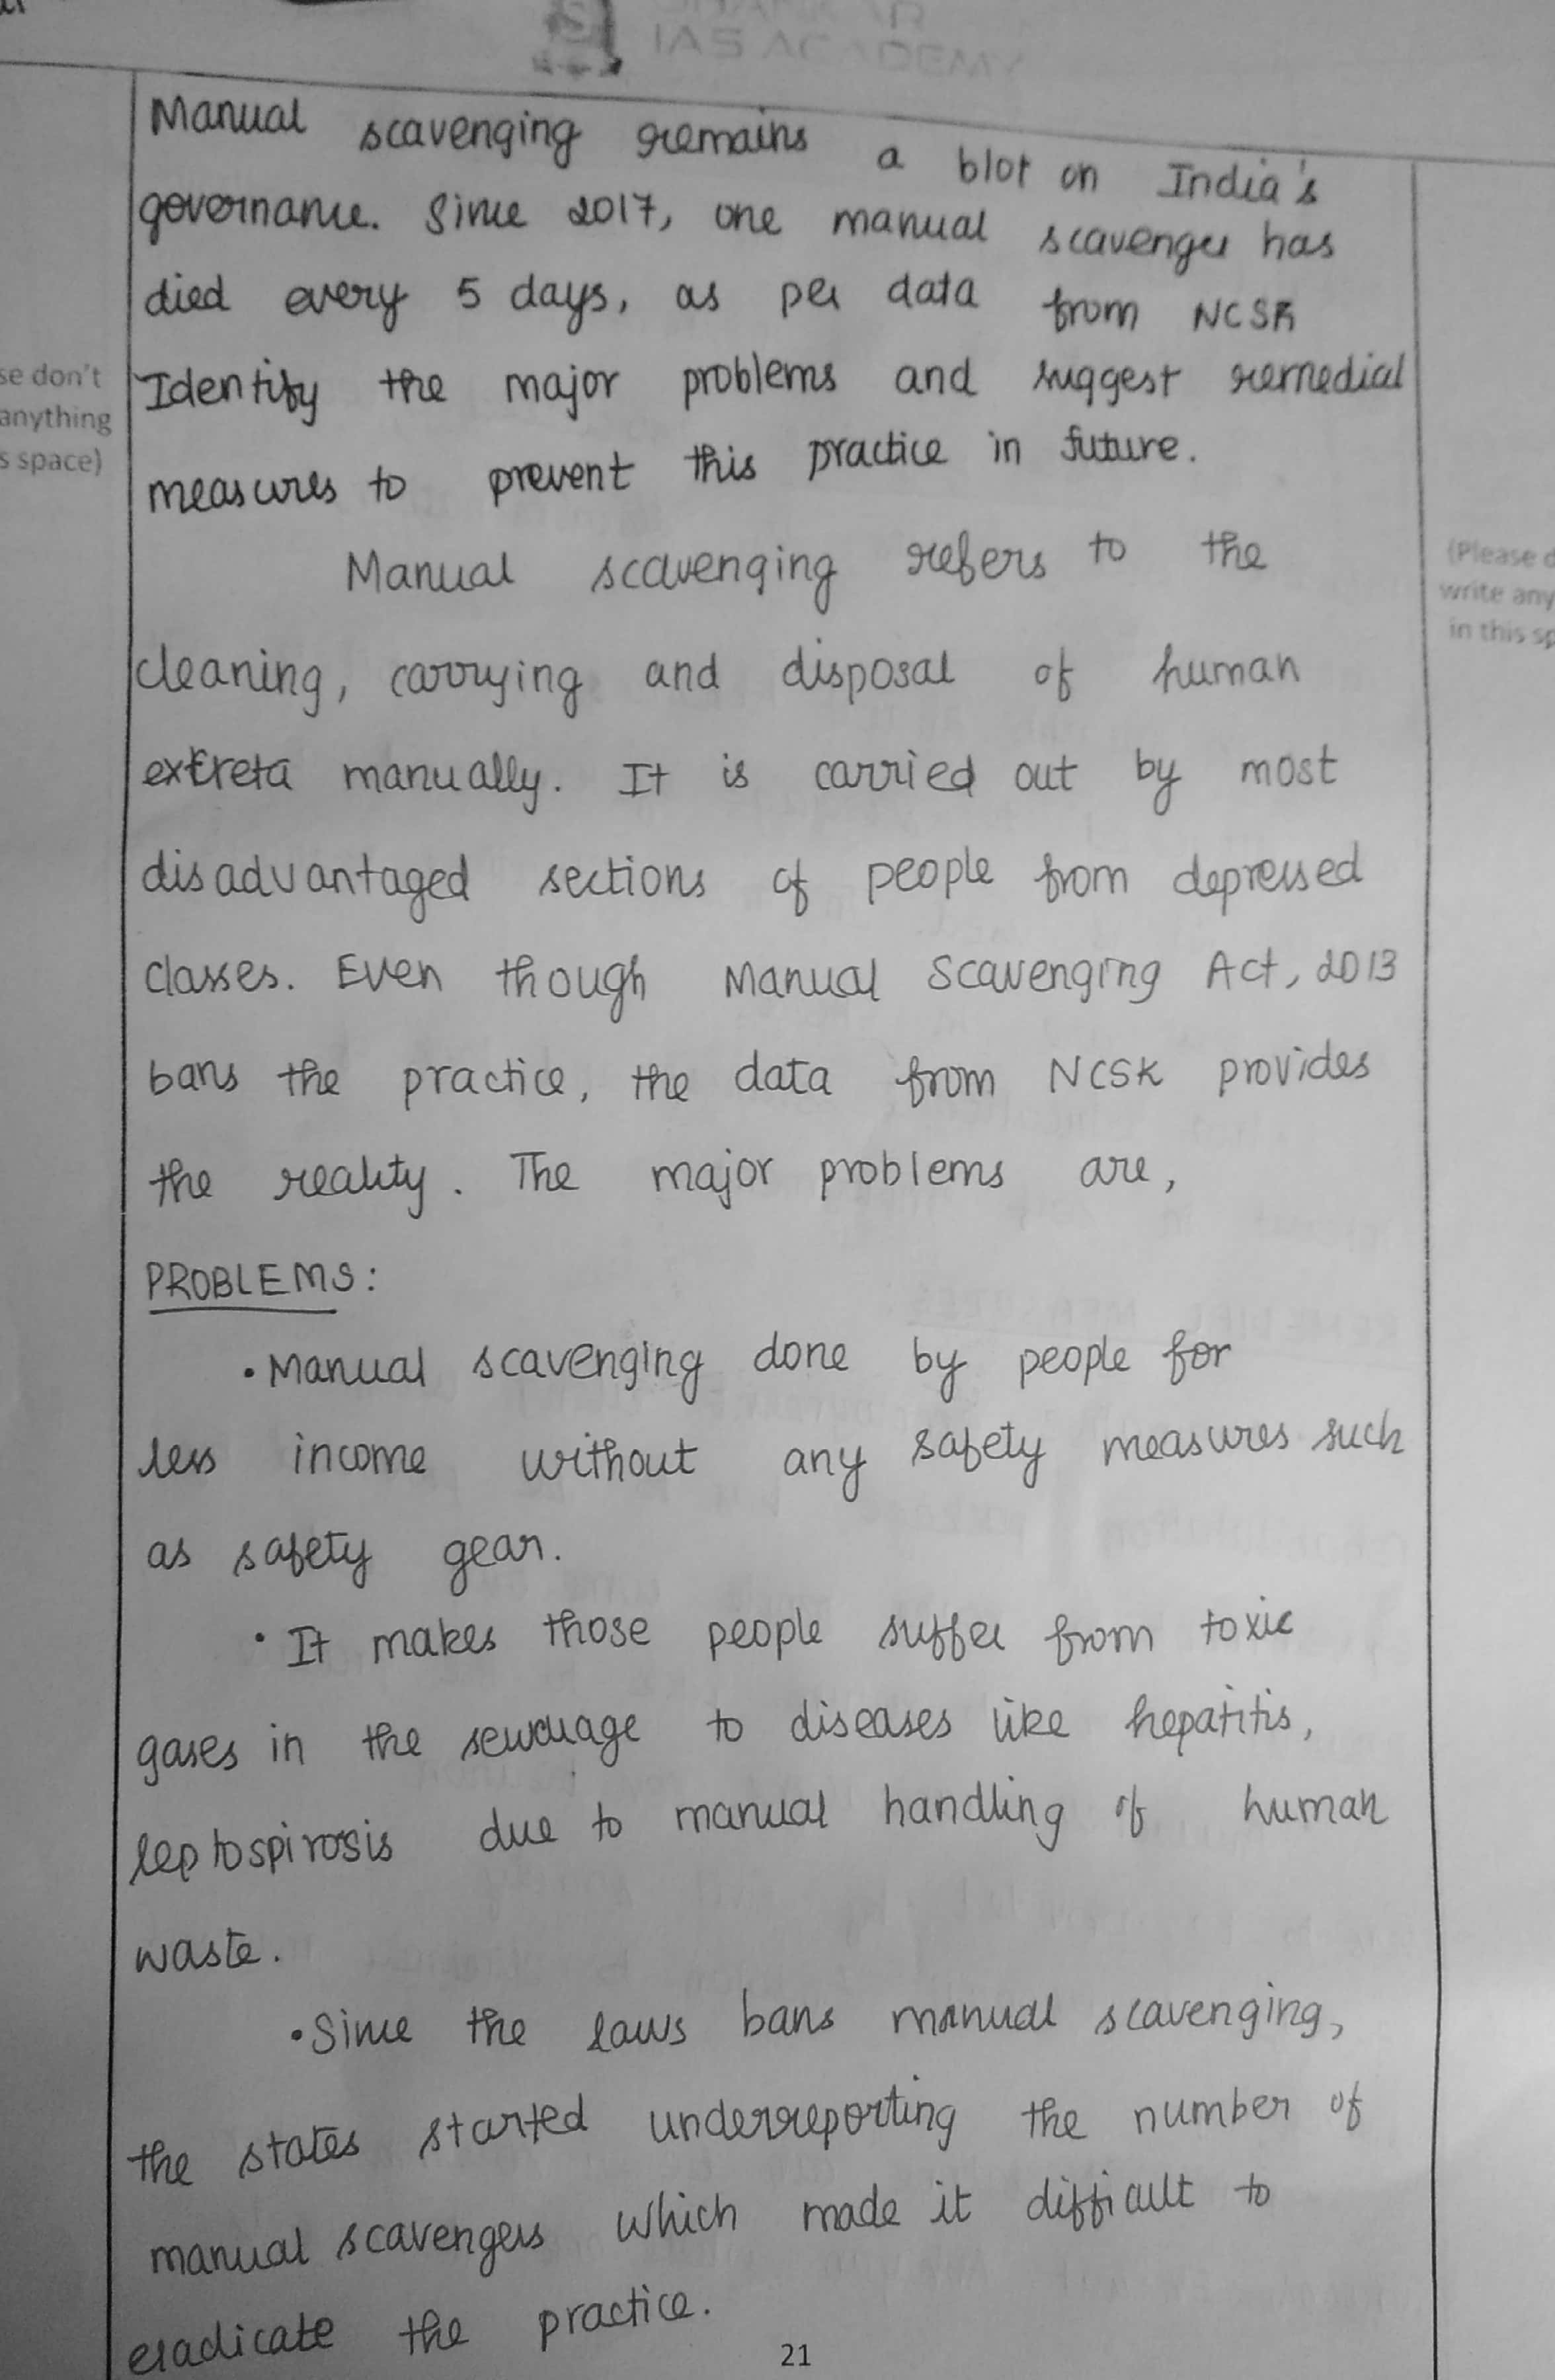 IAS ACADEMY
Manual scavenging remains a blot on India's
governance. Since 2017, one manual scavenger has
died every 5 days, as per data from NCSK
se don't
anything
s space)
Identify the major problems and suggest remedial
measures to prevent this practice in future.
(Please d
write any
in this sp
Manual scavenging refers to the
cleaning, carrying and disposal of human
excreta manually. It is carried out by most
disadvantaged sections of people from depressed
classes. Even though Manual Scavenging Act, 2013
bans the practice, the data from NCSK provides
the reality. The major problems are,
PROBLEMS:
• Manual scavenging done by people for
less income without any safety measures such
as safety gear.
• It makes those people suffer from toxic
gases in the sewuage to diseases like hepatitis,
leptospirosis due to manual handling of human
waste.
• Since the laws bans manual scavenging,
the states started underreporting the number of
manual scavengers which made it difficult to
eradicate the practice.
21